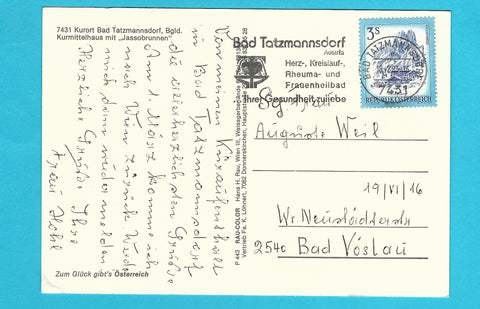 7431 Kurort Bad Tatzmannsdorf, Bgld.
Kurmittelhaus mit „Jassobrunnen"
Von meinem Kuraufenthalt
in Bad Tatzmannsdorf
die allerherzlichsten Grüße.
Am 1. März komme ich
nach Wien zurück. Werde
mich dann wieder melden
Herzliche Grüße Ihre
Frau Hohl
Zum Glück gibt's Österreich
P 443 RAU-COLOR Hans H. Rau, Wien III,
Vertrieb Fa. K. Löhnert, 7082 Donnerskirchen, Hauptstraße
Bad Tatzmannsdorf
Austria
Herz-, Kreislauf-,
Rheuma- und
Frauenheilbad
Ihrer Gesundheit zuliebe
3 S
REPUBLIK ÖSTERREICH
BAD TATZMANNSDORF
7431
Auguste Weil
19/VI/16
Wr. Neustädterstr.
2540 Bad Vöslau